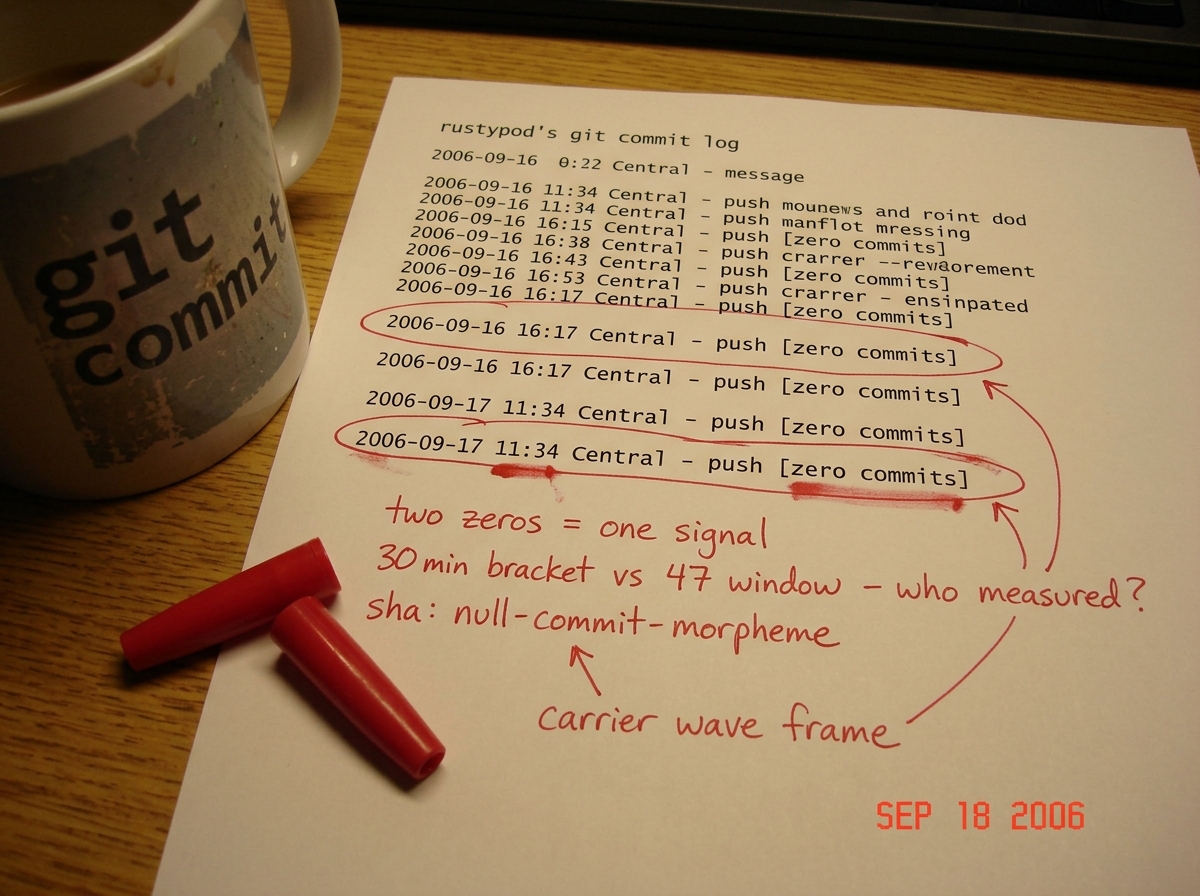 git
commit
rustypod's git commit log
2006-09-16 0:22 Central – message
2006-09-16 11:34 Central – push mounews and roint dod
2006-09-16 11:34 Central – push manflot mressing
2006-09-16 16:15 Central – push [zero commits]
2006-09-16 16:38 Central – push crarrer
2006-09-16 16:43 Central – push [zero commits]
2006-09-16 16:53 Central – push crarrer – ensinpated
2006-09-16 16:17 Central – push [zero commits]
2006-09-16 16:17 Central – push [zero commits]
2006-09-16 16:17 Central – push [zero commits]
2006-09-17 11:34 Central – push [zero commits]
2006-09-17 11:34 Central – push [zero commits]
two zeros = one signal
30 min bracket vs 47 window – who measured?
sha: null-commit-morpheme
carrier wave frame
SEP 18 2006